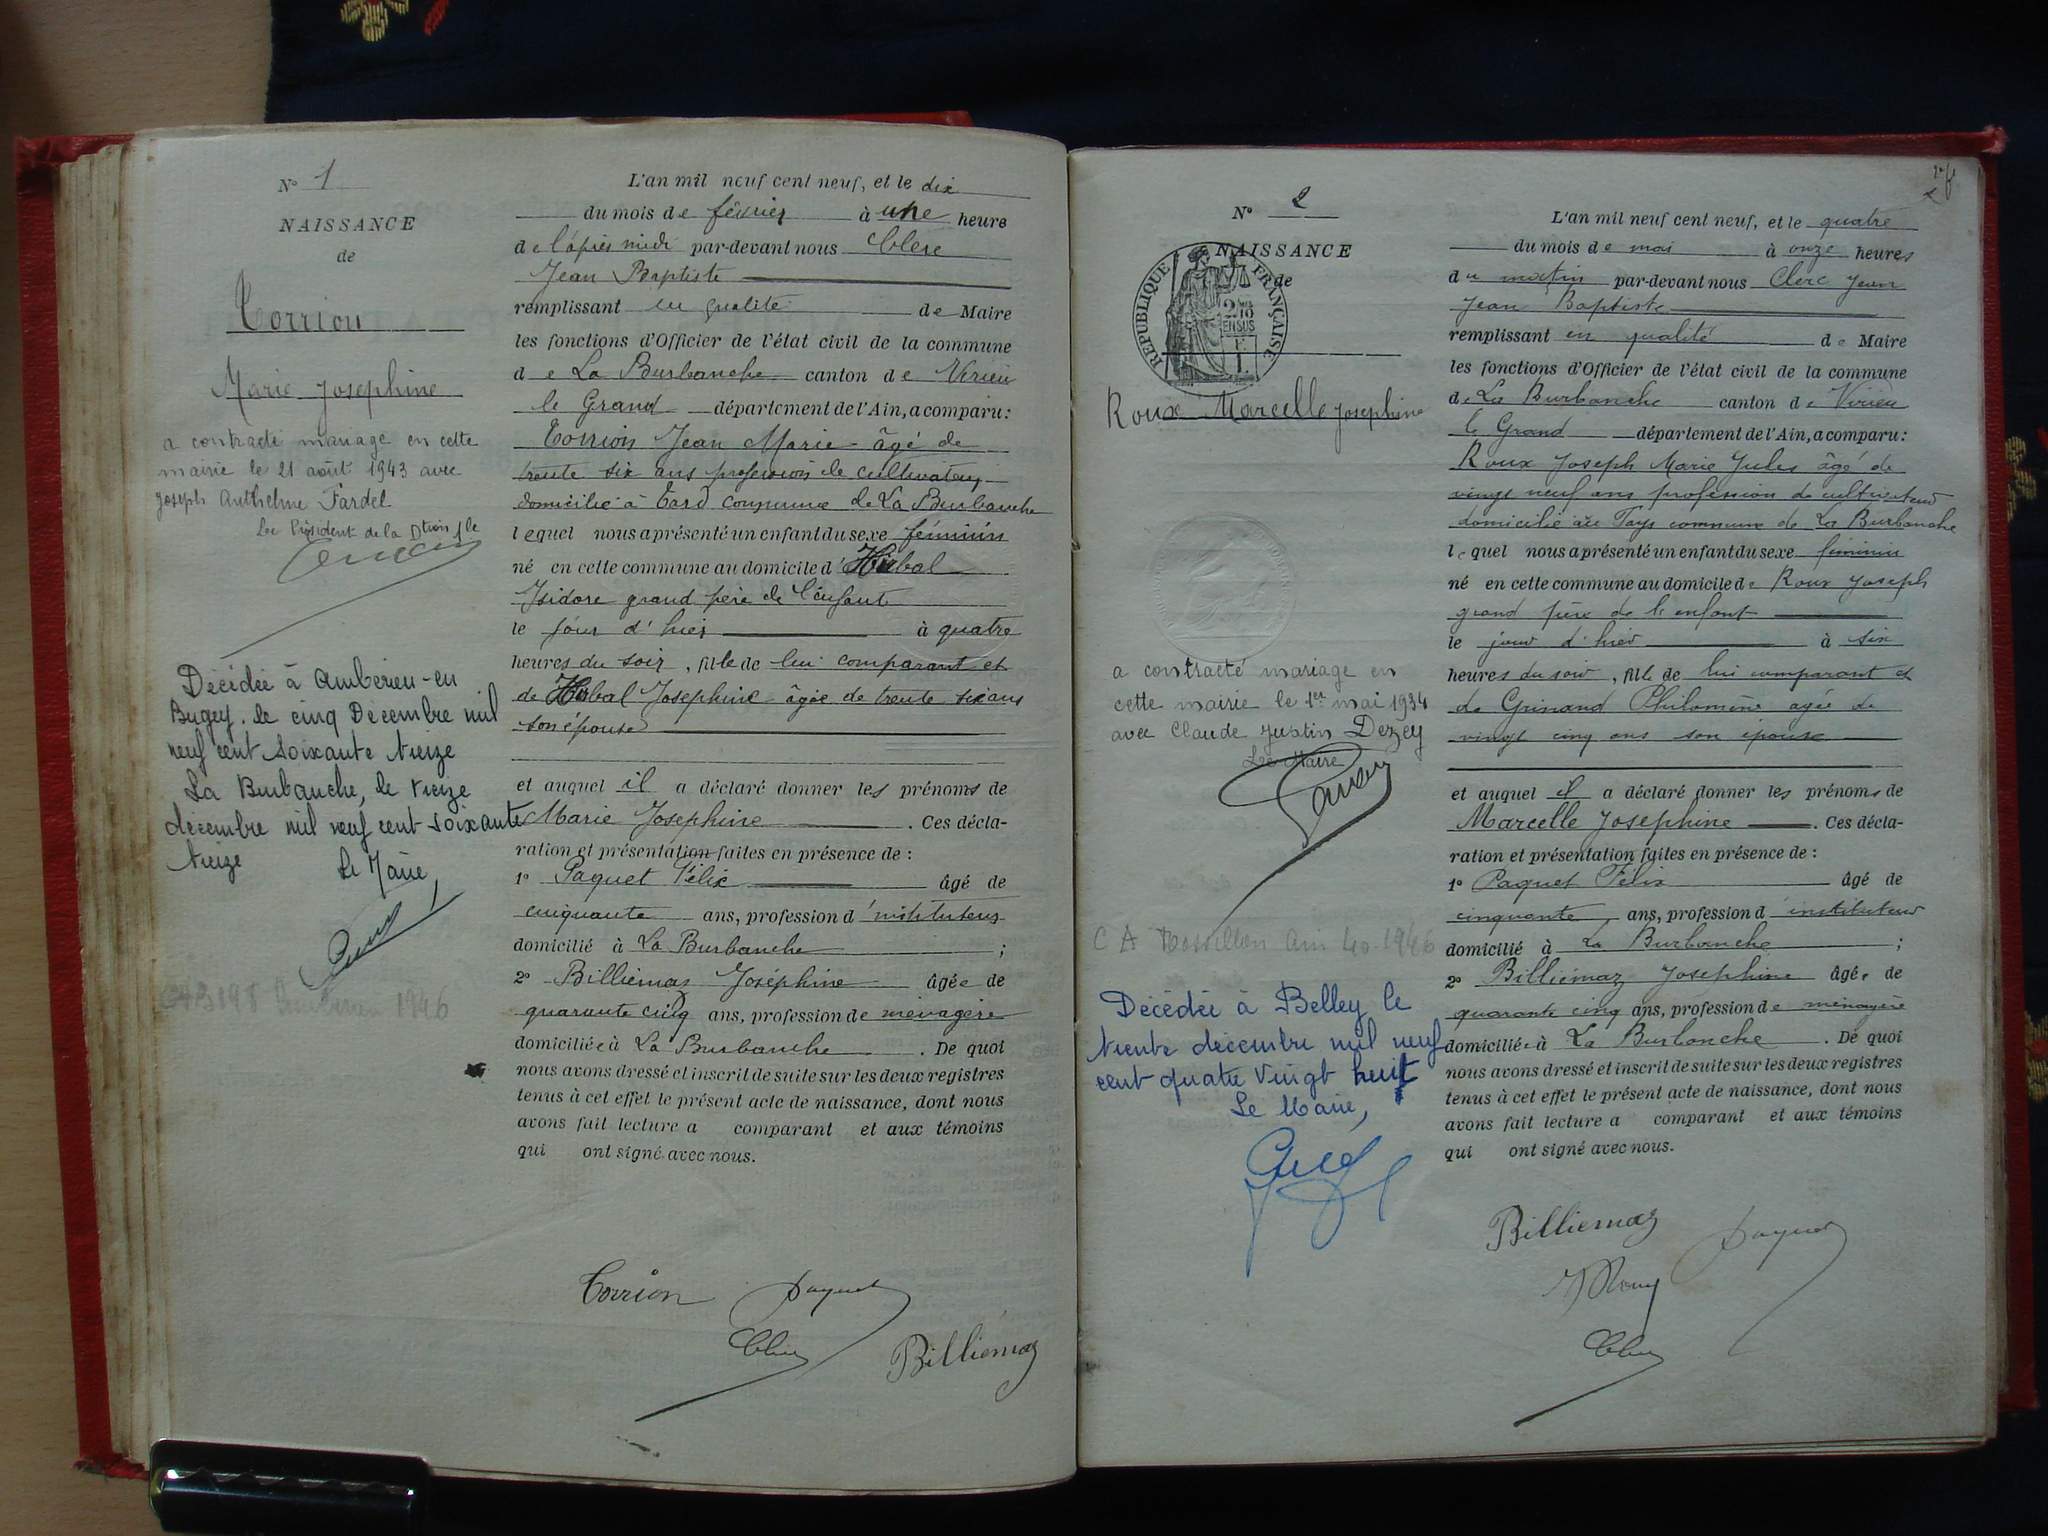 N° 1
NAISSANCE
de
Torrion
Marie Josephine
a contracté mariage en cette
mairie le 21 août 1943 avec
Joseph Anthelme Fardel
Le Président de la Dtion Sle
Décédée à Ambérieu-en
Bugey. le cinq Décembre mil
neuf cent soixante treize
La Burbanche, le treize
décembre mil neuf cent soixante
treize
Le Maire,
1946
L'an mil neuf cent neuf, et le dix
du mois de février à une heure
de l'après midi par-devant nous Clerc
Jean Baptiste
remplissant en qualité de Maire
les fonctions d'Officier de l'état civil de la commune
de La Burbanche canton de Virieu
le Grand département de l'Ain, a comparu:
Torrion Jean Marie âgé de
trente six ans profession de cultivateur
domicilié à Tard commune de La Burbanche
lequel nous a présenté un enfant du sexe féminin
né en cette commune au domicile d'
Isidore grand père de l'enfant
le jour d'hier à quatre
heures du soir, fille de lui comparant et
de Josephine âgée de trente six ans
son épouse
et auquel il a déclaré donner les prénoms de
Marie Josephine. Ces décla-
ration et présentation faites en présence de :
1° Paquet Félix âgé de
cinquante ans, profession d'instituteur
domicilié à La Burbanche ;
2° Billiémaz Joséphine âgée de
quarante cinq ans, profession de ménagère
domiciliée à La Burbanche. De quoi
nous avons dressé et inscrit de suite sur les deux registres
tenus à cet effet le présent acte de naissance, dont nous
avons fait lecture a comparant et aux témoins
qui ont signé avec nous.
Torrion Paquet
Clerc Billiémaz
N° 2
NAISSANCE
de
RÉPUBLIQUE FRANÇAISE
Roux Marcelle Josephine
a contracté mariage en
cette mairie le 1er mai 1934
avec Claude Justin Dezey
Le Maire
C A Rossillon Ain 40.1946
Décédée à Belley le
trente décembre mil neuf
cent quatre vingt huit
Le Maire,
L'an mil neuf cent neuf, et le quatre
du mois de mai à onze heures
du matin par-devant nous Clerc Jean
Jean Baptiste
remplissant en qualité de Maire
les fonctions d'Officier de l'état civil de la commune
de La Burbanche canton de Virieu
le Grand département de l'Ain, a comparu:
Roux Joseph Marie Jules âgé de
vingt neuf ans profession de cultivateur
domicilié au Tays commune de La Burbanche
lequel nous a présenté un enfant du sexe féminin
né en cette commune au domicile de Roux Joseph
grand père de l'enfant
le jour d'hier à six
heures du soir, fille de lui comparant et
de Grinand Philomène agée de
vingt cinq ans son épouse
et auquel il a déclaré donner les prénoms de
Marcelle Josephine. Ces décla-
ration et présentation faites en présence de :
1° Paquet Félix âgé de
cinquante ans, profession d'instituteur
domicilié à La Burbanche ;
2° Billiémaz Josephine âgée de
quarante cinq ans, profession de ménagère
domiciliée à La Burbanche. De quoi
nous avons dressé et inscrit de suite sur les deux registres
tenus à cet effet le présent acte de naissance, dont nous
avons fait lecture a comparant et aux témoins
qui ont signé avec nous.
Billiemaz Paquet
J Roux
Clerc